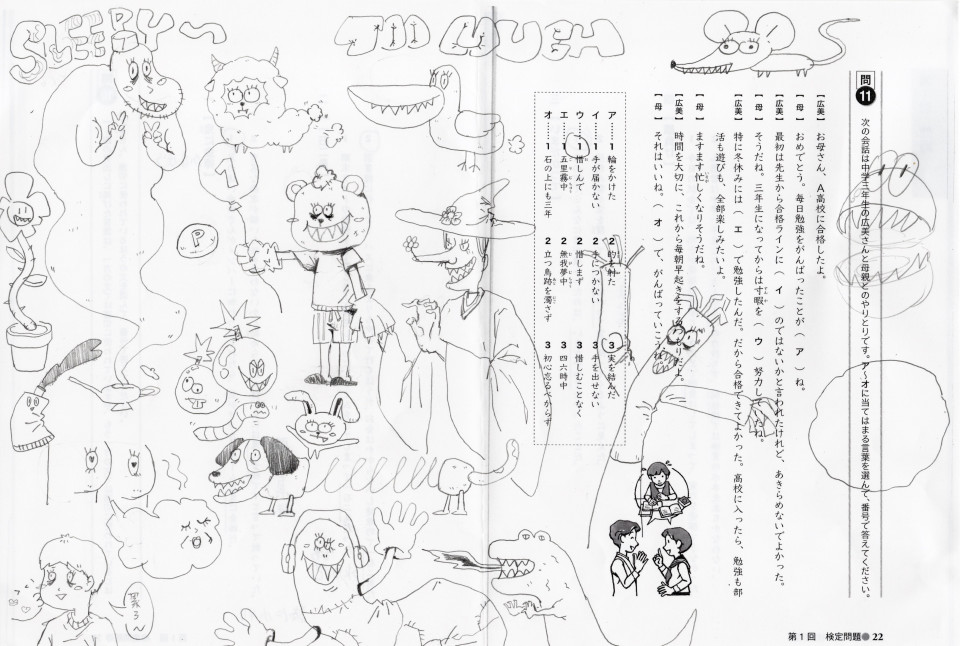 SLEEPY〜
TOO MUCH
問11 次の会話は中学三年生の広美さんと母親とのやりとりです。ア〜オに当てはまる言葉を選んで、番号で答えてください。
【広美】 お母さん、A高校に合格したよ。
【母】 おめでとう。毎日勉強をがんばったことが( ア )ね。
【広美】 最初は先生から合格ラインに( イ )のではないかと言われたけれど、あきらめないでよかった。
【母】 そうだね。三年生になってからは寸暇を( ウ )努力してたね。
【広美】 特に冬休みには( エ )で勉強したんだ。だから合格できてよかった。高校に入ったら、勉強も部
活も遊びも、全部楽しみたいよ。
【母】 ますます忙しくなりそうだね。
【広美】 時間を大切に、これから毎朝早起きをするつもりだよ。
【母】 それはいいね。( オ )で、がんばっていこうね。
ア……1 輪をかけた 2 的を射た 3 実を結んだ
イ……1 手が届かない 2 手につかない 3 手を出せない
ウ……1 惜しんで 2 惜しまず 3 惜しむことなく
エ……1 五里霧中 2 無我夢中 3 四六時中
オ……1 石の上にも三年 2 立つ鳥跡を濁さず 3 初心忘るべからず
1
P
第1回 検定問題●22